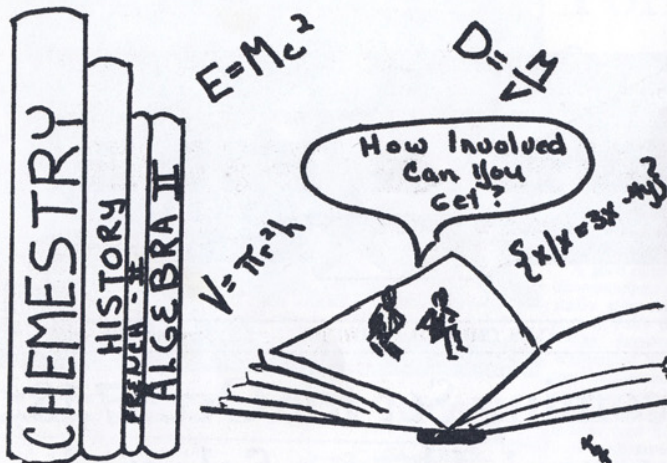 CHEMESTRY
HISTORY
FRENCH - II
ALGEBRA II
E=Mc²
D=M/V
How Involved
Can You
Get?
V=πr²h
{x/x=3x-4y}